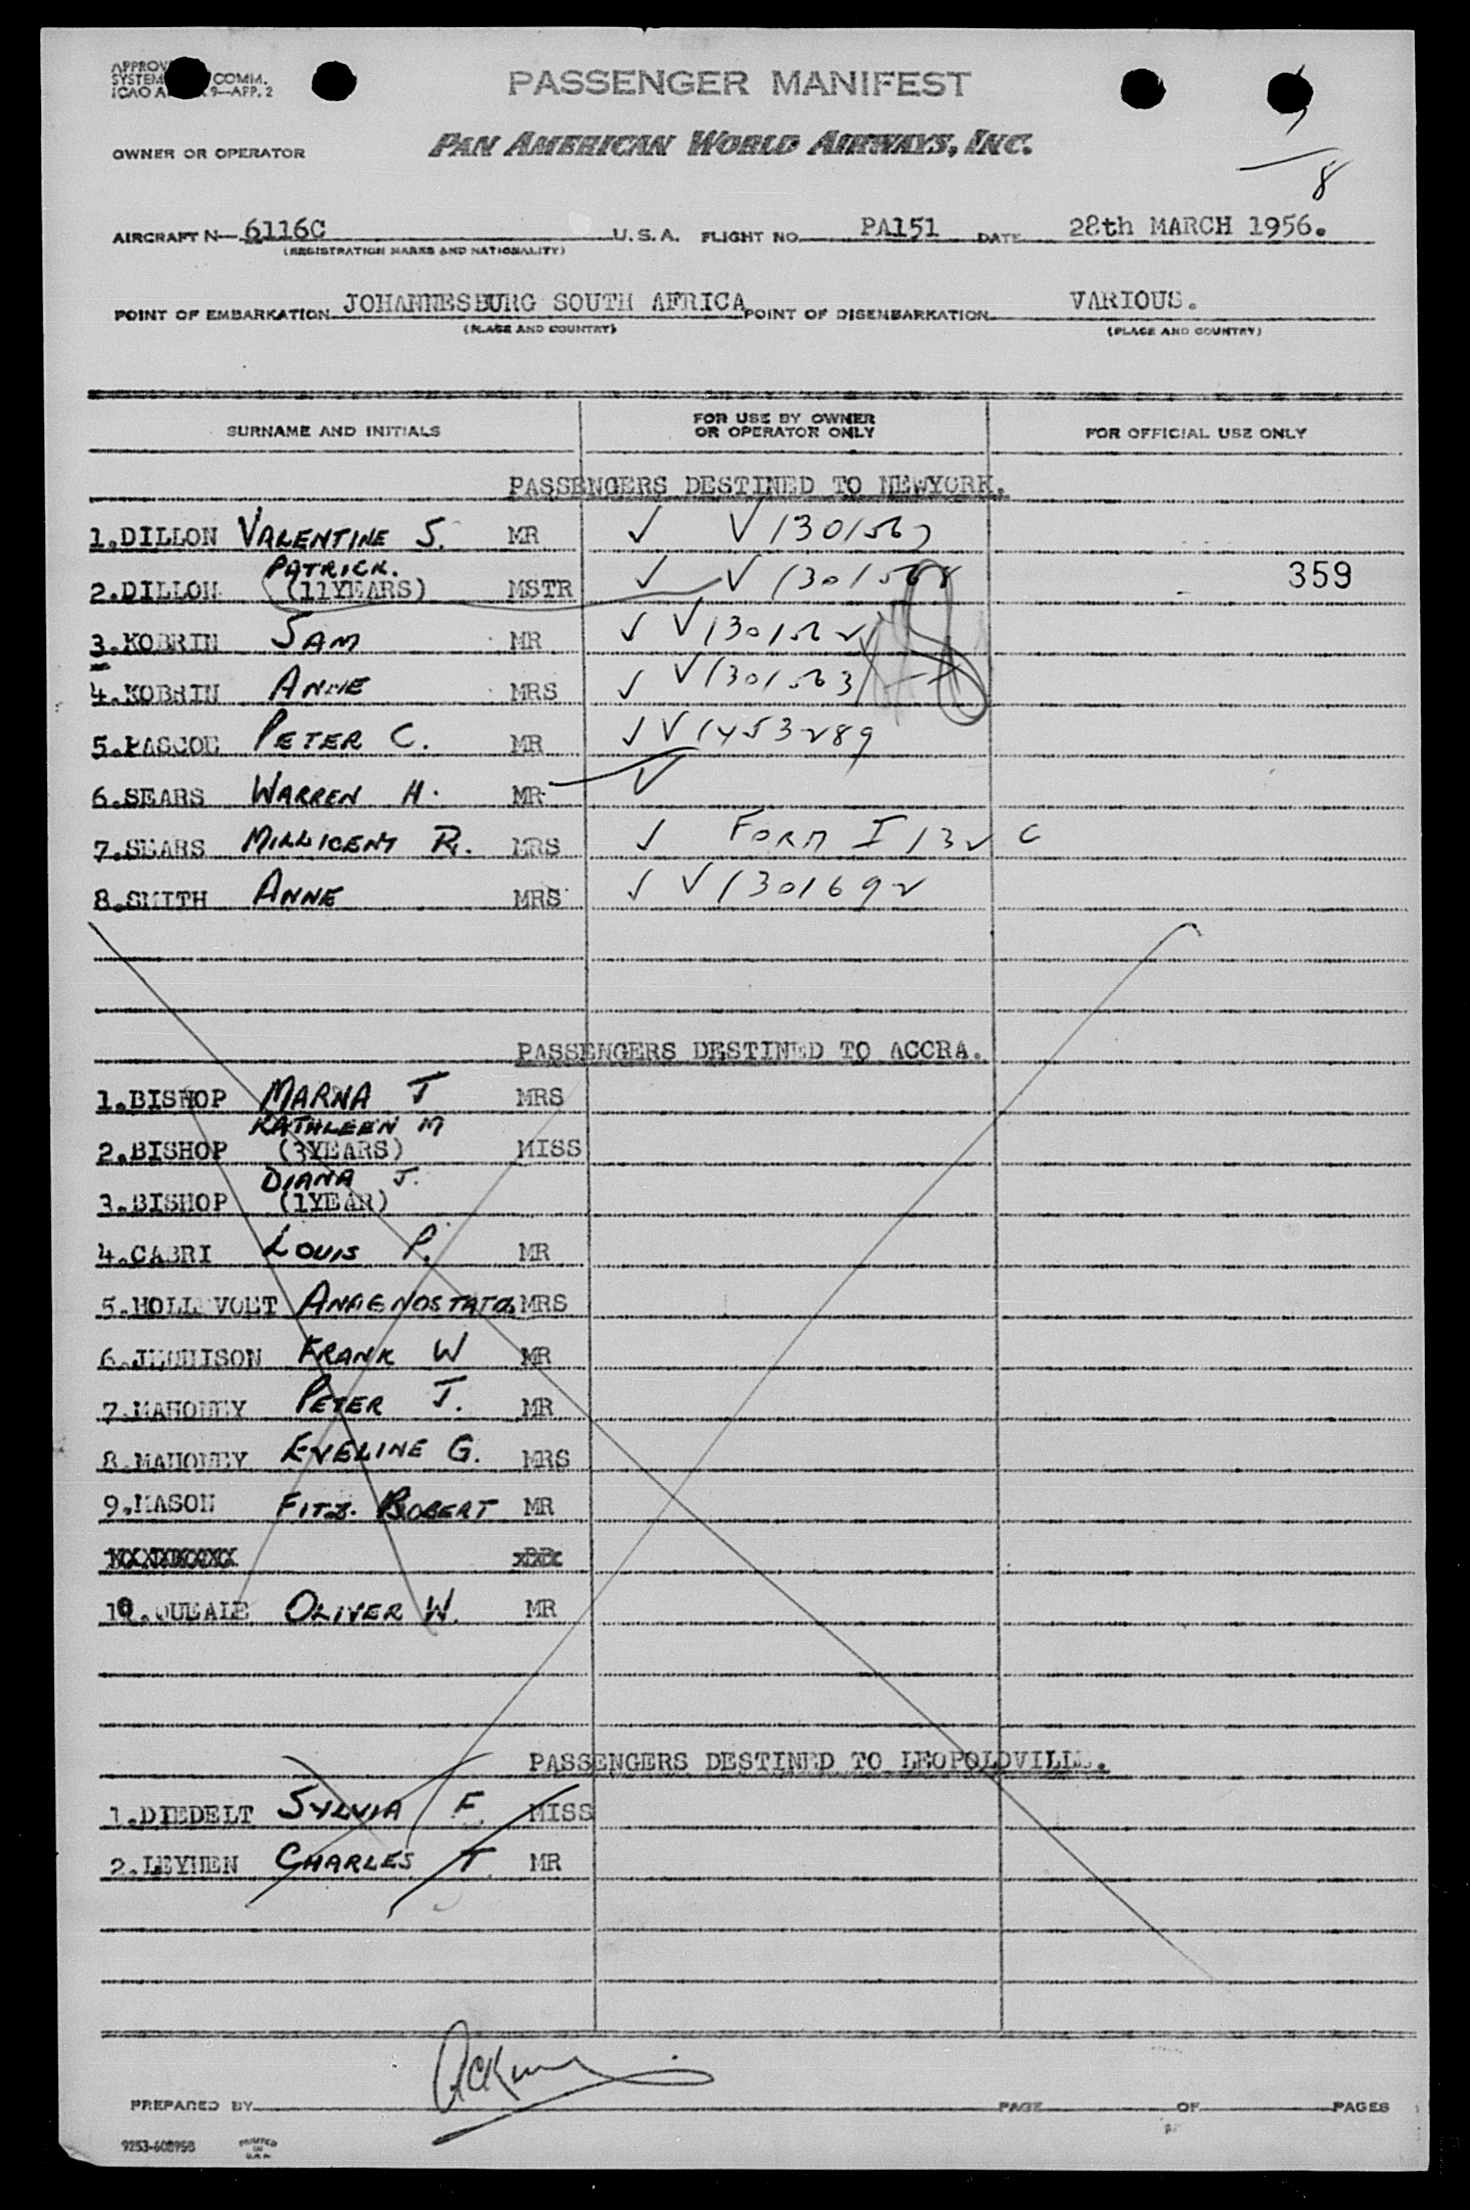 PASSENGER MANIFEST
COMM.
9—APP. 2
OWNER OR OPERATOR
PAN AMERICAN WORLD AIRWAYS, INC.
8
AIRCRAFT N- 6116C U.S.A. FLIGHT NO. PA151 DATE 28th MARCH 1956.
(REGISTRATION MARKS AND NATIONALITY)
POINT OF EMBARKATION JOHANNESBURG SOUTH AFRICA POINT OF DISEMBARKATION VARIOUS.
(PLACE AND COUNTRY) (PLACE AND COUNTRY)
SURNAME AND INITIALS FOR USE BY OWNER OR OPERATOR ONLY FOR OFFICIAL USE ONLY
PASSENGERS DESTINED TO NEWYORK.
1.DILLON VALENTINE S. MR ✓ V1301567
PATRICK.
2.DILLON (11YEARS) MSTR ✓ V1301568 359
3.KOBRIN SAM MR ✓ V1301562
4.KOBRIN ANNE MRS ✓ V1301563
5.PASCOE PETER C. MR ✓ V1453289
6.SEARS WARREN H. MR ✓
7.SEARS MILLICENT R. MRS ✓ FORM I 132 C
8.SMITH ANNE MRS ✓ V1301692
PASSENGERS DESTINED TO ACCRA.
1.BISHOP MARNA J MRS
KATHLEEN M
2.BISHOP (3YEARS) MISS
DIANA J.
3.BISHOP (1YEAR)
4.CABRI LOUIS P. MR
5.HOLLEVOET MRS
6.JENNISON FRANK W MR
7.MAHONEY PETER J. MR
8.MAHONEY EVELINE G. MRS
9.MASON FITZ. ROBERT MR
10.QUEALE OLIVER W. MR
PASSENGERS DESTINED TO LEOPOLDVILLE.
1.DIEDELT SYLVIA F. MISS
2.LEYHEN CHARLES T MR
PREPARED BY PAGE OF PAGES
9253-608958 PRINTED IN U.S.A.